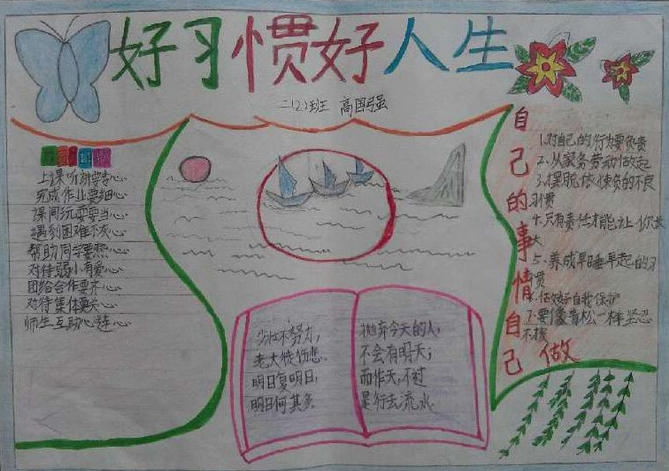 好习惯好人生
二(2)班 高国强
上课听讲要专心
完成作业要细心
课间玩耍要当心
遇到困难不灰心
帮助同学要热心
对待弱小有爱心
团结合作要齐心
对待集体要关心
师生互动心连心
少壮不努力,
老大徒伤悲.
明日复明日,
明日何其多.
抛弃今天的人,
不会有明天;
而昨天,不过
是行去流水.
自己的事情自己做
1.对自己的行为要负责
2.从家务劳动做起
3.摆脱依赖的不良
习惯
4.只有责任才能让你长
大
5.养成早睡早起的习
惯
6.做好自我保护
7.要像青松一样坚忍
不拔